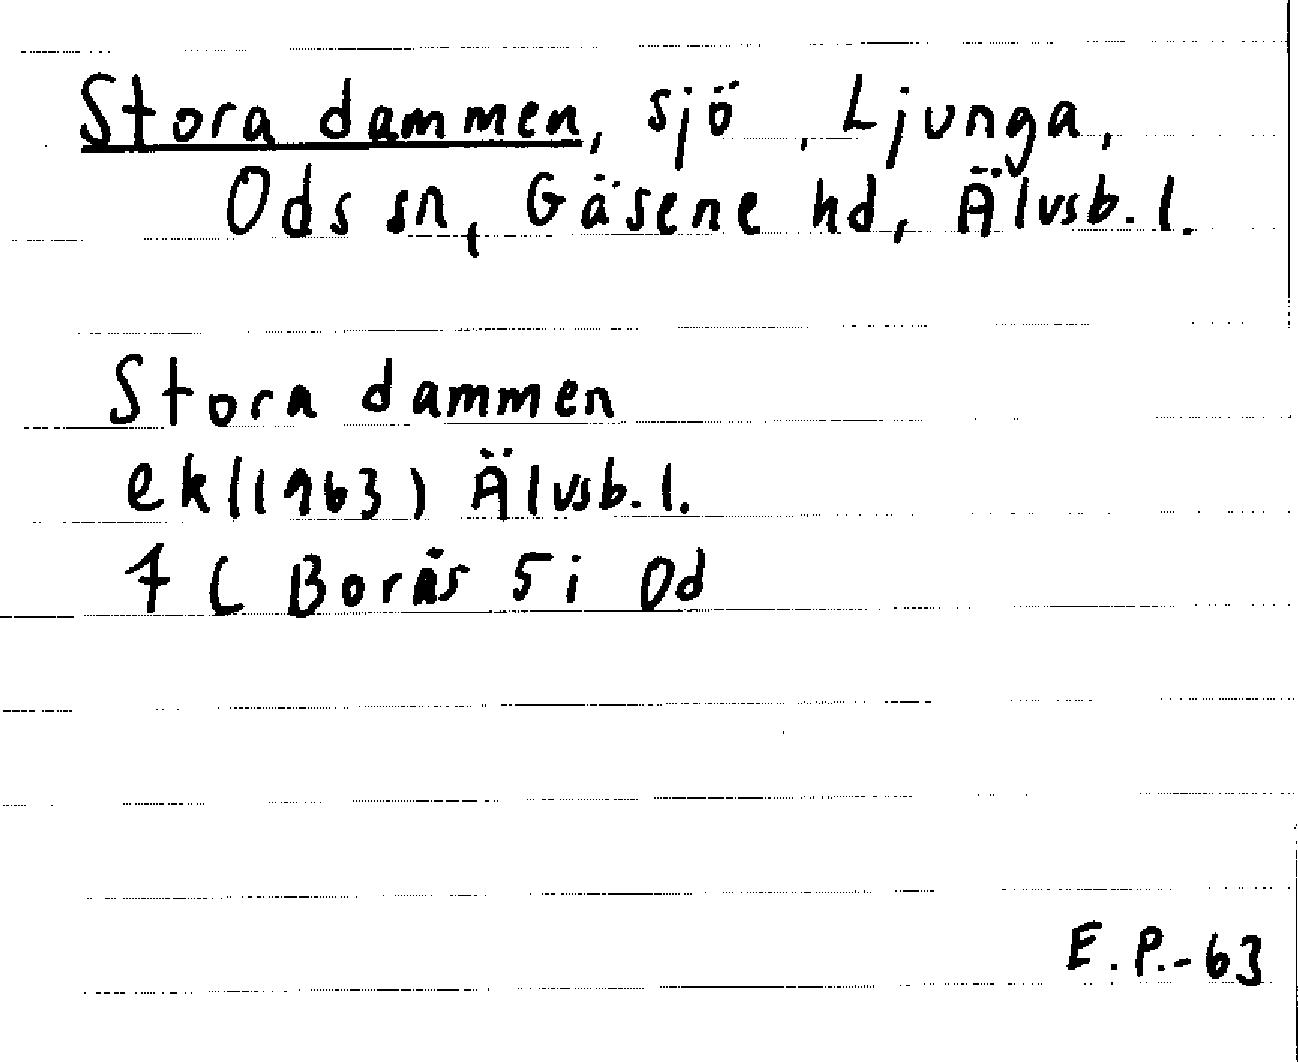 Stora dammen, sjö, Ljunga,
Ods sn, Gäsene hd, Älvsb. l.
Stora dammen
ek (1963) Älvsb. l.
7 C Borås 5 i Od
E. P. - 63